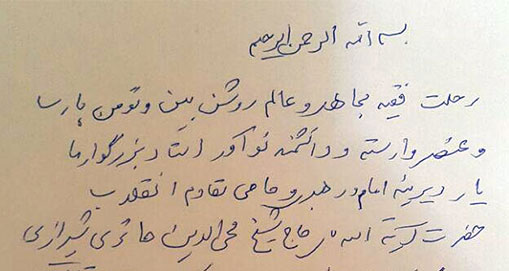 بسم الله الرحمن الرحیم
رحلت فقیه مجاهد و عالم روشن بین و مومن پارسا
و عنصر وارسته و دانشمند نوآور استاد بزرگوار ما
یار دیرینه امام و رهبر و حامی مقاوم انقلاب
حضرت آیت الله حاج شیخ محی الدین حائری شیرازی